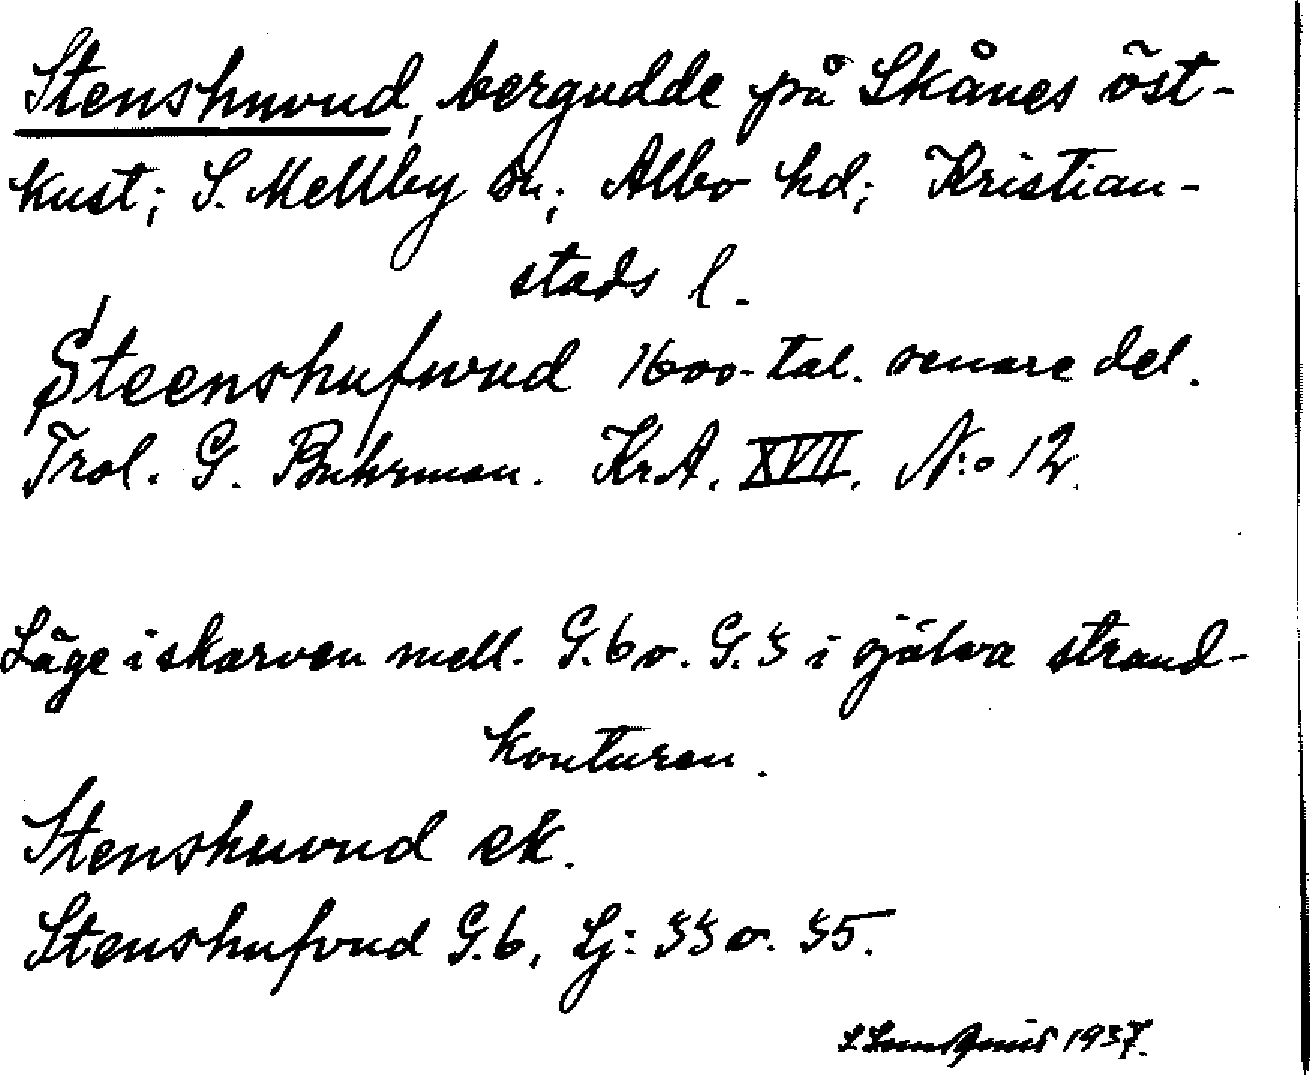 Stenshuvud, bergudde på Skånes öst-
kust; S. Mellby sn; Albo hd; Kristian-
stads l.
Steenshufwud 1600-tal. senare del.
Trol. G. Buhrman. Kr.A. XVII. N:o 12.
Läge i skarven mell. G.6 o. G.3 i själva strand-
konturen.
Stenshuvud ek.
Stenshufvud G.6, Lj: 33 o. 35.
1937.